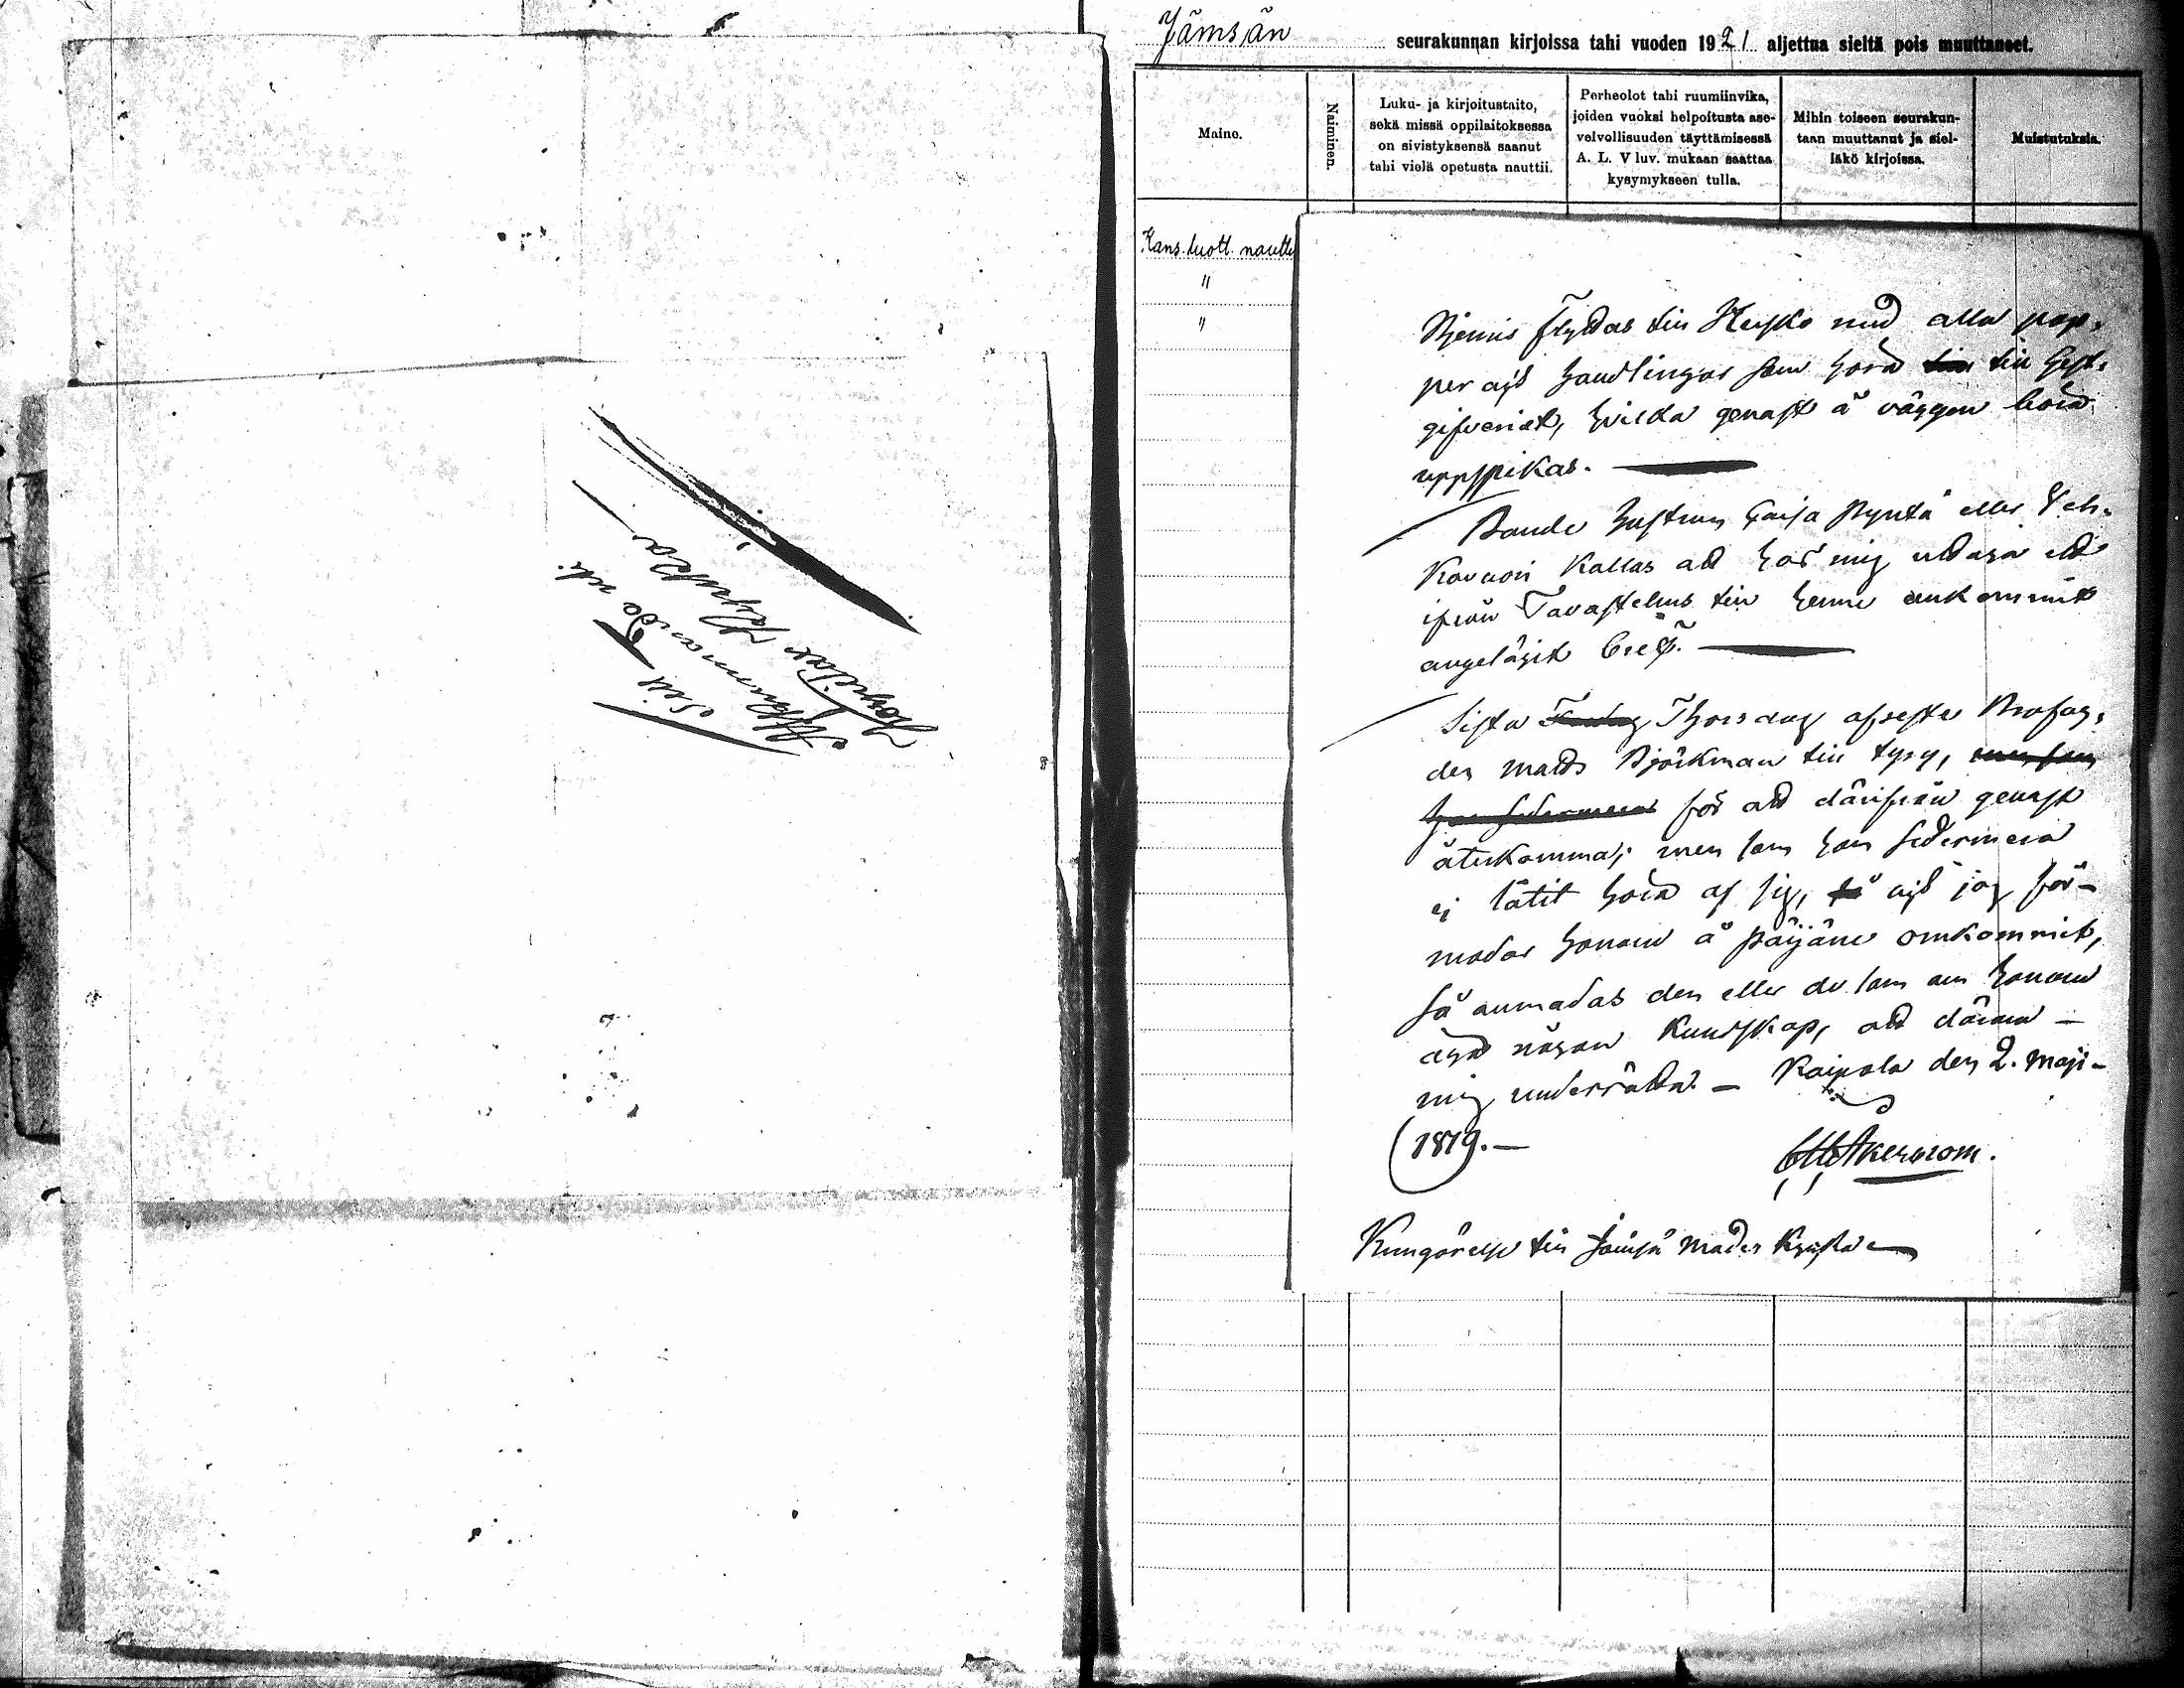 Jämsän seurakunnan kirjoissa tahi vuoden 1921 aljettua sieltä pois muuttaneet.
Maine.
Naiminen.
Luku- ja kirjoitustaito,
sekä missä oppilaitoksessa
on sivistyksensä saanut
tahi vielä opetusta nauttii.
Perheolot tahi ruumiinvika,
joiden vuoksi helpoitusta ase-
velvollisuuden täyttämisessä
A. L. V luv. mukaan saattaa
kysymykseen tulla.
Mihin toiseen seurakun-
taan muuttanut ja siel-
läkö kirjoissa.
Muistutuksia.
Kans. luott. nautti
"
"
flyttas till med alla pap-
per och handlingar som höra till till gäst-
gifveriet, hvilka genast å väggen böra
uppspikas.
Bonde hustrun Caisa eller
kallas att hos mig uttaga ett
ifrån Tavastehus till henne ankommit
angelägit bref.
Sista Thorsdag afreste
den Matts Björkman till
för att därifrån genast
återkomma; men som han sedermera
ej låtit höra af sig, så och jag för-
modar honom å Päijäne omkommit,
så anmodas den eller de som om honom
äga någon kundskap, att därom
mig underrätta. Kaipola den 2. Maji
1819.
Kungörelse till Jämsä Moder Kyrka
Till